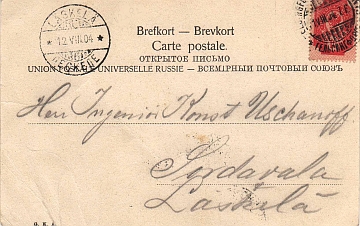 LÄSKELÄ
12 VII.04
Brefkort — Brevkort
Carte postale.
ОТКРЫТОЕ ПИСЬМО
UNION POSTALE UNIVERSELLE RUSSIE — ВСЕМІРНЫЙ ПОЧТОВЫЙ СОЮЗЪ
Herr Ingeniör Konst Uschanoff
Sordavala
Läskelä